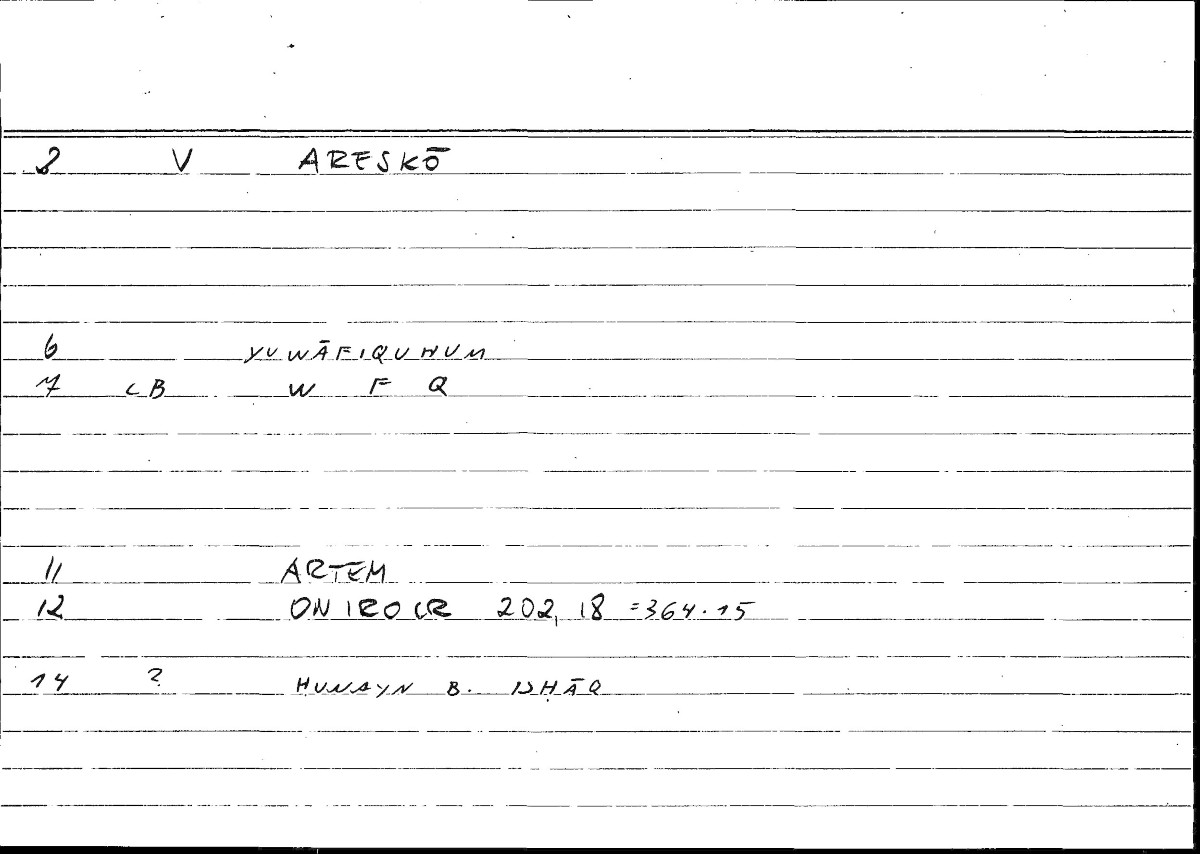 2 V ARESKŌ
6 YUWĀFIQUHUM
7 CB W F Q
11 ARTEM
12 ONIROCR 202, 18 =364.15
14 ? ḤUNAYN B. ISḤĀQ